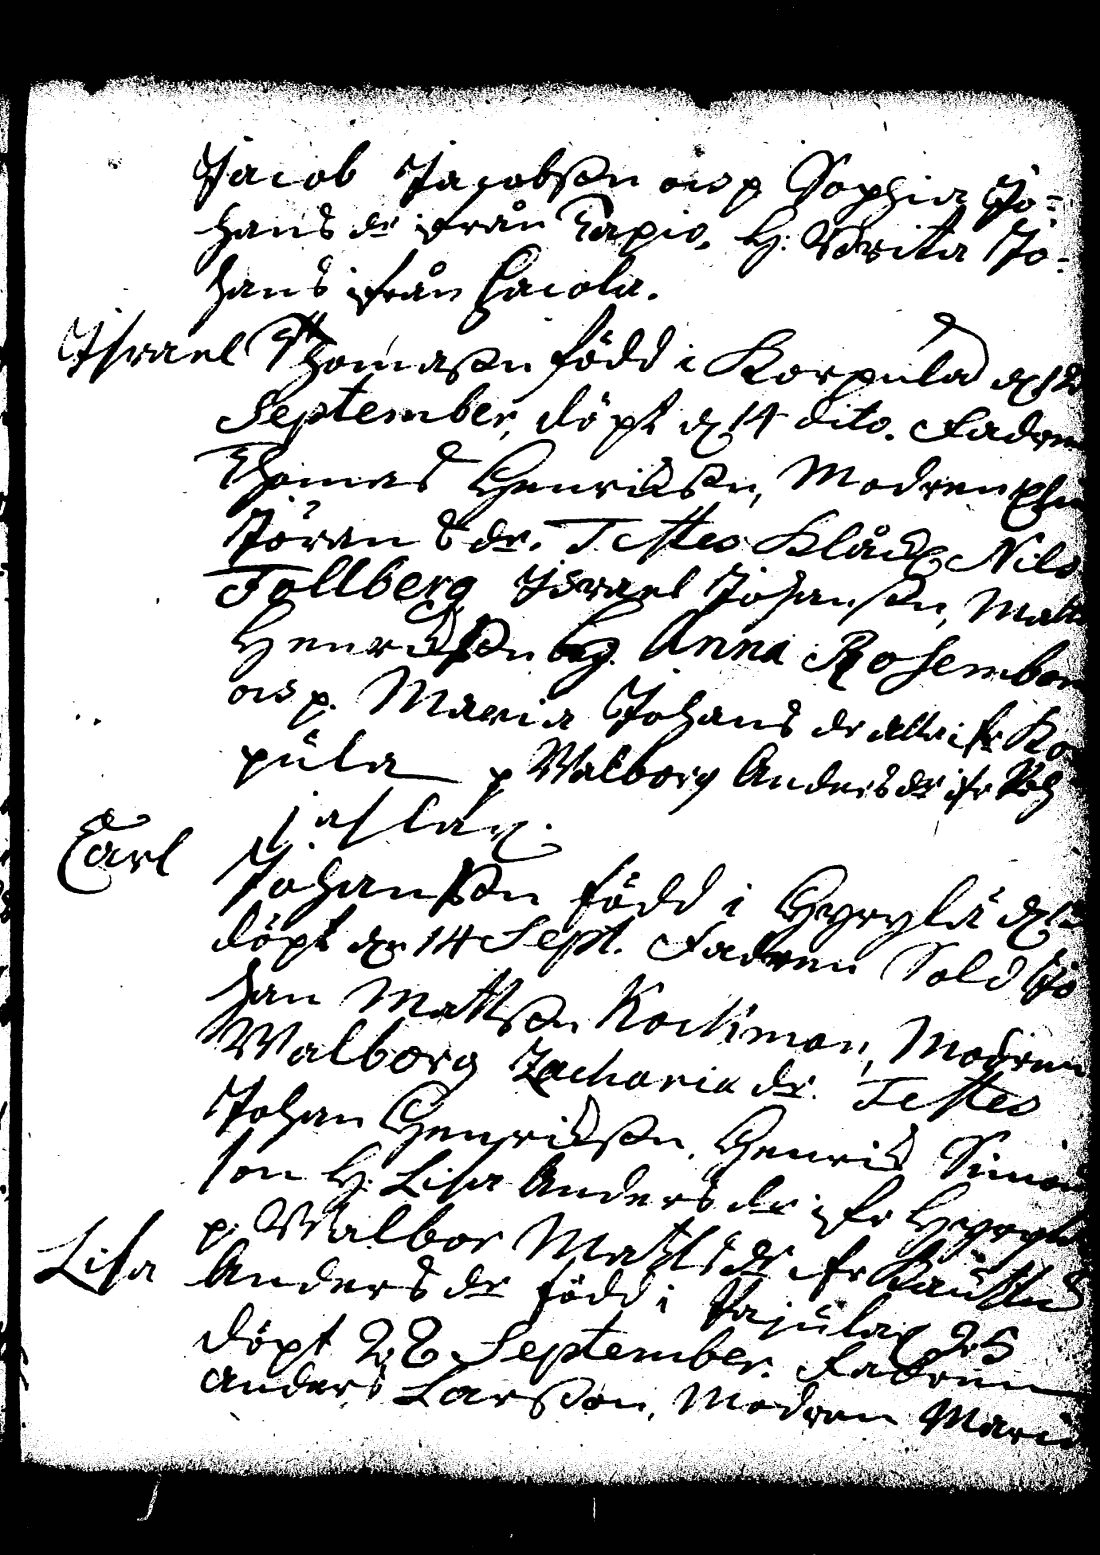 Jacob Jacobsson och p. Sophia Jo=
hans dr ifrån Tapio. H. Wärita Jo=
hans ifrån Hacola.
Israel Thomasson född i Korpula d. 12
September, döpt d. 14 dito. Fadren
Thomas Henricsson, Modren
Jöran s dr. Testes Klåck. Nils
Tollberg Israel Johansson, Matts
Henricsson H. Anna Rosembor
och p. Maria Johans dr alla ifr Kor
pula p Walborg Anders dr ifr
Carl Johansson född i Hyrylä d.
döpt d. 14 Sept. Fadren Sold Jo
han Mattsson Kockman, Modren
Walborg Zacharia dr. Testes
Johan Henricsson, Henric Simon
son H. Lisa Anders dr ifr Hyryla
p. Walbor Matts dr ifr
Lisa Anders dr född i Pajula d. 25
döpt 28 September. Fadren
Anders Larsson, Modren Maria